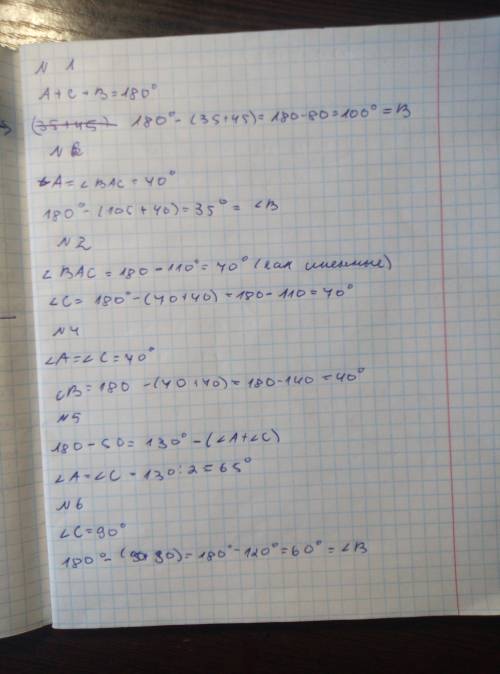 N 1
A+C+B=180°
(35+45) 180°-(35+45)=180-80=100°=B
N 2
∠A=∠BAC=40°
180°-(105+40)=35°=∠B
N 2
∠BAC=180-110°=70° (как смежные)
∠C=180°-(70+40)=180-110=70°
N4
∠A=∠C=70°
∠B=180-(70+70)=180-140=40°
N5
180-50=130°-(∠A+∠C)
∠A=∠C=130:2=65°
N6
∠C=90°
180°-(90 30)=180°-120°=60°=∠B